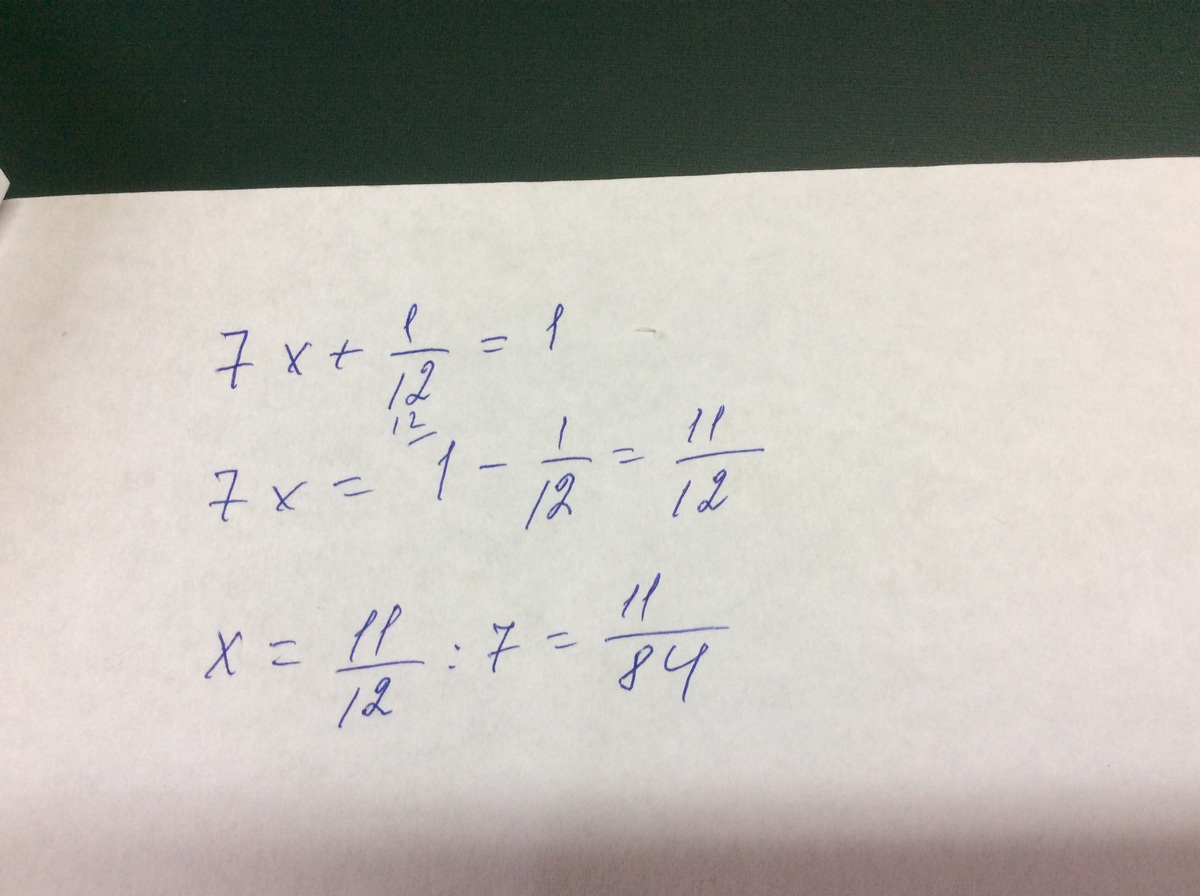 7x + 1/12 = 1
12
7x = 1 - 1/12 = 11/12
x = 11/12 : 7 = 11/84